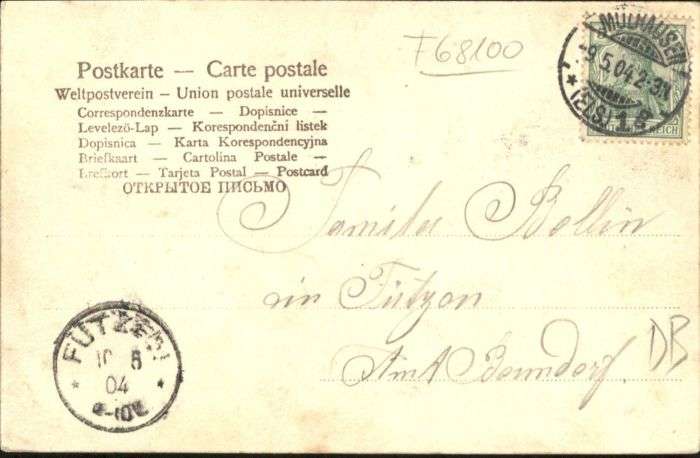 F68100
MÜLHAUSEN
9.5.04.2-3N
(ELS) 1 g
REICH
Postkarte — Carte postale
Weltpostverein — Union postale universelle
Correspondenzkarte — Dopisnice —
Levelező-Lap — Korespondenční listek
Dopisnica — Karta Korespondencyjna
Briefkaart — Cartolina Postale —
Brefkort — Tarjeta Postal — Postcard
ОТКРЫТОЕ ПИСЬМО
Familie Bollin
in Fützen
Amt Bonndorf.
DB
FÜTZEN
10 5
04